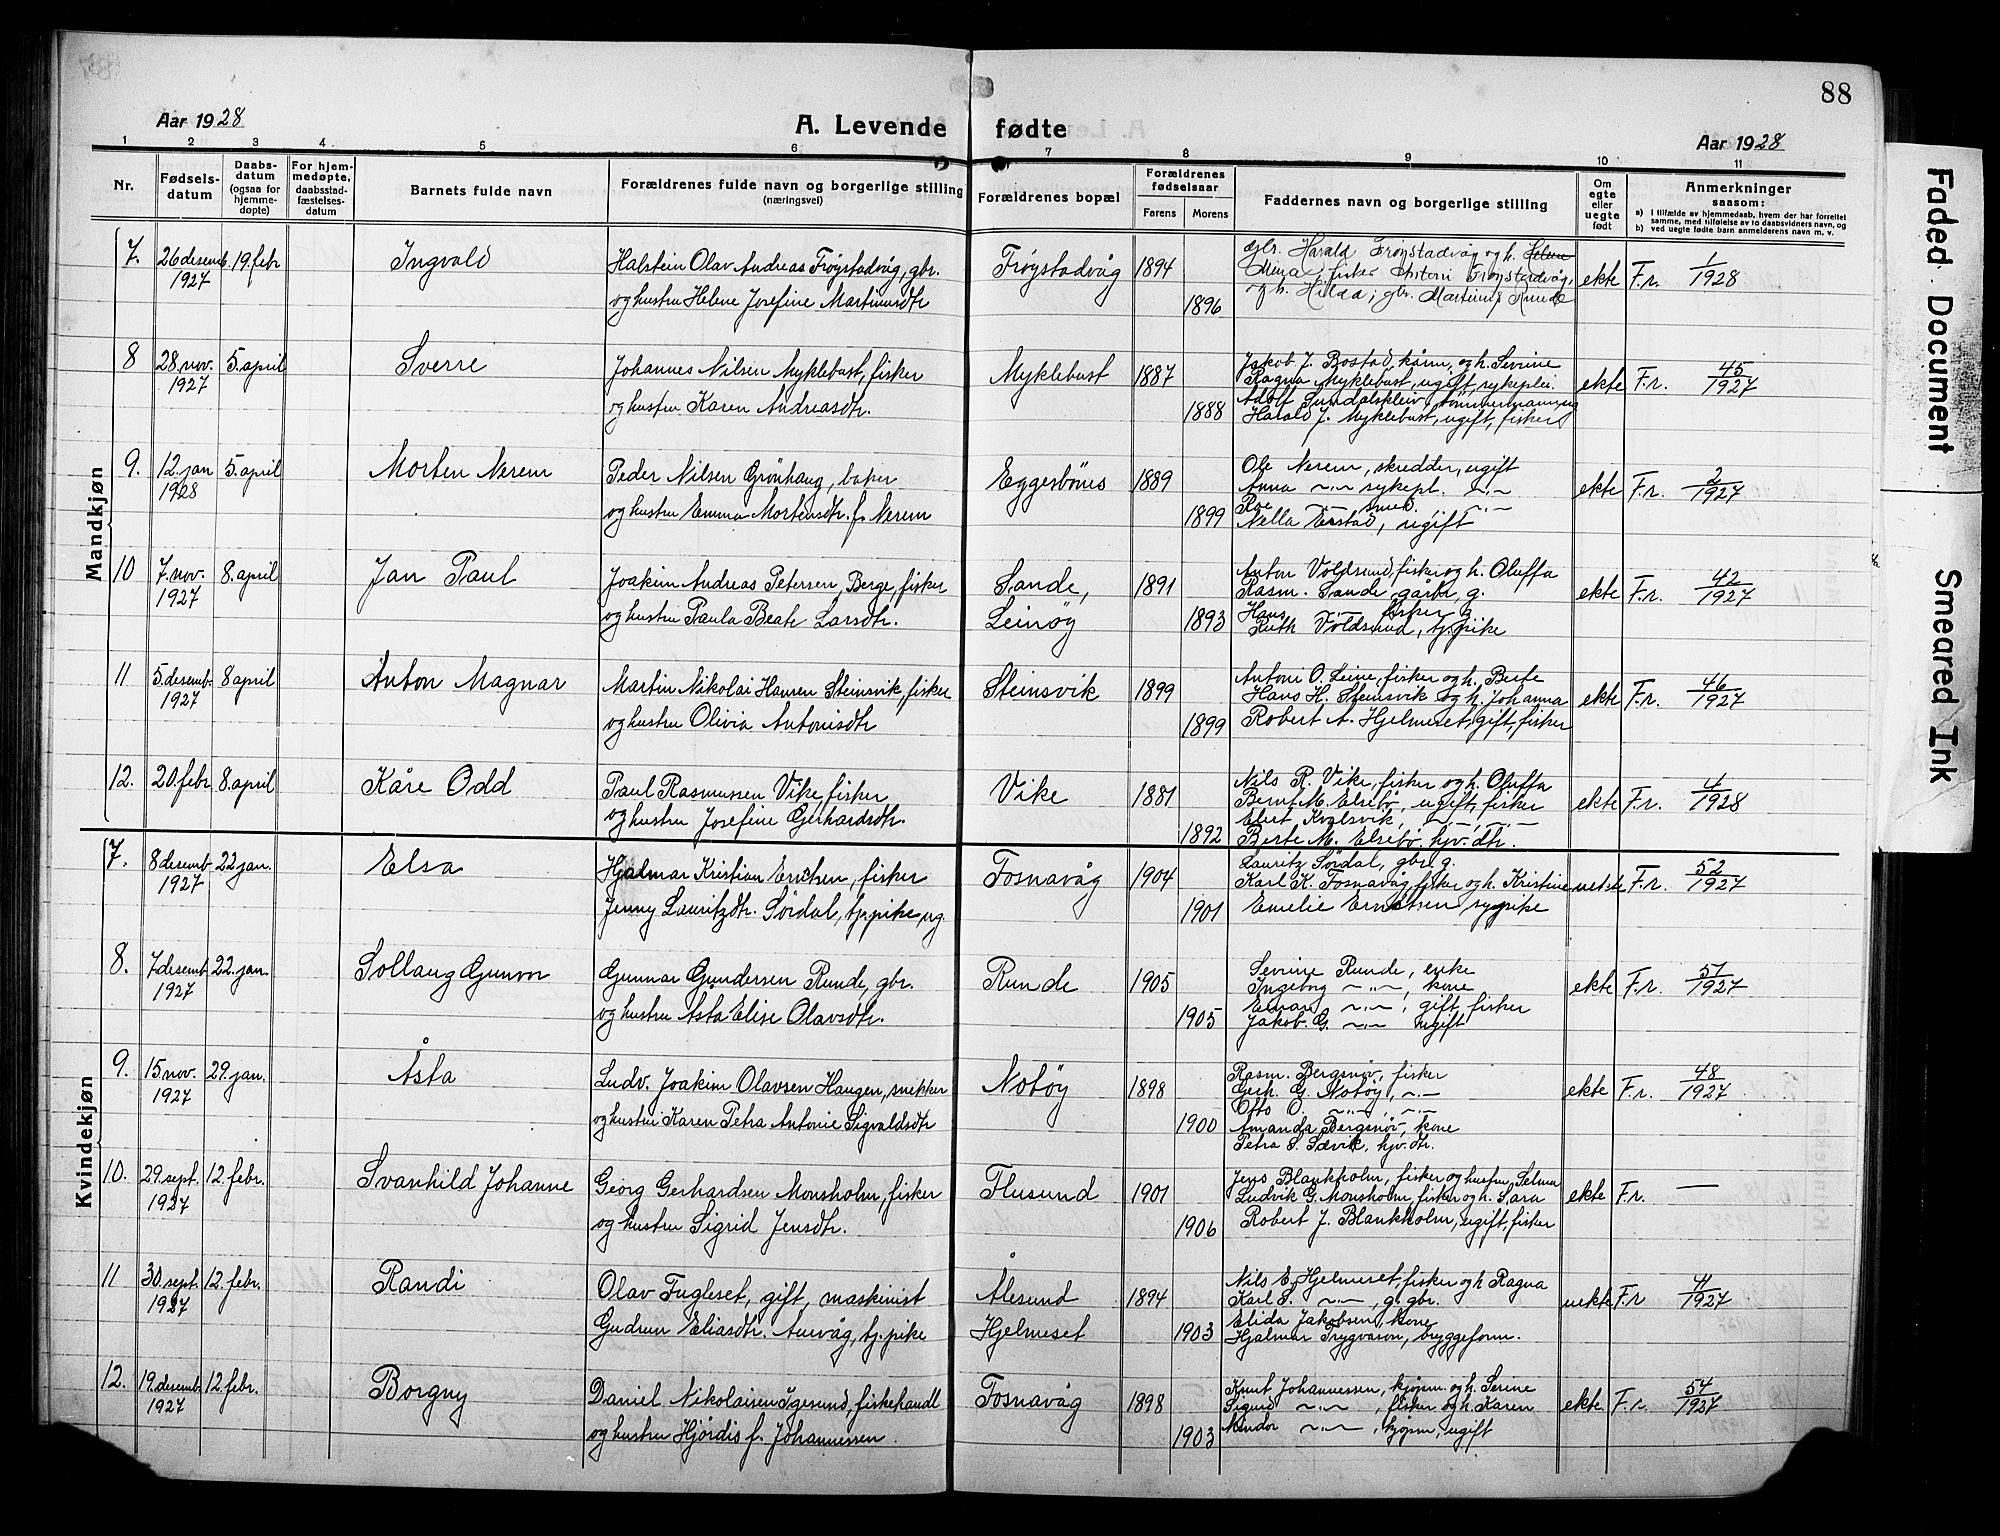 88
Aar 1928
A. Levende fødte
Aar 1928
1 2 3 4 5 6 7 8 9 10 11
Nr.
Fødsels-
datum
Daabs-
datum
(ogsaa for
hjemme-
døpte)
For hjem-
medøpte,
daabsstad-
fæstelses-
datum
Barnets fulde navn
Forældrenes fulde navn og borgerlige stilling
(næringsvei)
Forældrenes bopæl
Forældrenes
fødselsaar
Farens Morens
Faddernes navn og borgerlige stilling
Om
egte
eller
uegte
født
Anmerkninger
saasom:
a) I tilfælde av hjemmedaab, hvem der har forrettet
samme, med tilføielse av to daabsvidners navn, og
b) ved uegte fødte barn anmelderens navn m. v.
Mandkjøn
7. 26 desemb. 19. febr Ingvald Halstein Olav Andreas Frøystadvåg, gbr. Frøystadvåg 1894 gbr. Harald Frøystadvåg og h. Helene
1927 og hustru Helene Josefine Martinusdtr 1896 Mina, fisker Antoni Frøystadvåg, ekte F.r. 1/1928
og h. Hilda; gbr. Martinus Runde
8 28. nov. 5. april Sverre Johannes Nilsen Myklebust, fisker Myklebust 1887 Jakob J. Bostad, kånn, og h. Severine
1927 og hustru Karen Andreasdtr. 1888 Ragna Myklebust, ugift, sykeplei. ekte F.r. 45/1927
Adolf Sundalskleiv, tømmermann, ug
Harald J. Myklebust, ugift, fisker
9. 12. jan 5. april Morten Nerem Peder Nilsen Grønhaug, baker Eggesbønes 1889 Ole Nerem, skredder, ugift
1928 og hustru Emma Mortensdtr. f. Nerem 1899 Anna -"- sykepl. -"- ekte F.r. 2/1927
Roe -"- smed. -"-
Nella Erstad, ugift
10 7. nov. 8. april Jan Paul Joakim Andreas Petersen Berge, fisker Sande, 1891 Anton Voldsund, fisker og h. Oluffa
1927 og hustru Paula Beate Larsdtr. Leinøy 1893 Rasm. Sande, gårbr, g. ekte F.r. 42/1927
Hans -"- fisker g
Ruth Voldsund, tj.pike
11 5. desemb. 8 april Anton Magnar Martin Nikolai Hansen Steinsvik, fisker Steinsvik 1899 Antoni O. Leine, fisker og h. Berte
1927 og hustru Olivia Antonisdtr 1899 Hans H. Steinsvik og h. Johanna ekte F.r. 46/1927
Robert A. Hjelmeset, gift, fisker
12. 20. febr 8. april Kåre Odd Paul Rasmussen Vike, fisker Vike 1881 Nils R. Vike, fisker og h. Oluffa
og hustru Josefine Gerhardsdtr. 1892 Bernt M. Elsebø, ugift, fisker ekte F.r. 4/1928
Elert Kvalsvik, -"-, -"-
Berte M. Elsebø hjv. dtr.
Kvindekjøn
7. 8 desemb 22 jan. Elsa Hjalmar Kristian Erntsen, fisker Fosnavåg 1904 Lauritz Sørdal, gbr. g.
1927 Jenny Lauritzdtr. Sørdal, tj.pike, ug. 1901 Karl K. Fosnavåg, fisker og h. Kristine uekte F.r. 52/1927
Emelie Erntsen, sypike
8. 7 desemb 22. jan. Sollaug Gunvor Gunnar Gundersen Runde, gbr. Runde 1905 Severine Runde, enke
1927 og hustru Asta Elise Olavsdtr. 1905 Ingeborg -"-, kone ekte F.r. 51/1927
Einar -"-, gift, fisker
Jakob. G. -"- ugift
9. 15 nov. 29. jan. Åsta Ludv. Joakim Olavsen Haugen, snekker Notøy 1898 Rasm. Bergsnøv, fisker
1927 og hustru Karen Petra Antonie Sigvaldsdtr 1900 Gerh. G. Notøy, -"- ekte F.r. 48/1927
Otto O. -"-, -"-
Amanda Bergsnøv, kone
Petra S. Sævik, hjv. dtr.
10. 29. sept. 12. febr. Svanhild Johanne Georg Gerhardsen Monsholm, fisker Flusund 1901 Jens Blankholm, fisker og hustru Selma
1927 og hustru Sigrid Jensdtr. 1906 Ludvik G. Monsholm, fisker og h. Sara ekte F.r. —
Robert J. Blankholm, ugift, fisker
11 30. sept. 12. febr. Randi Olav Fugleset, gift, maskinist Ålesund 1894 Nils E. Hjelmeset, fisker og h. Ragna
1927 Gudrun Eliasdtr. Aurvåg, tj.pike Hjelmeset 1903 Karl S. -"-, g. gbr. uekte F.r 41/1927
Elida Jakobsen, kone
Hjalmar Trygvason, bryggeform.
12. 19. desemb. 12. febr. Borgny Daniel Nikolaisen Igesund, fiskehandl Fosnavåg 1898 Knut Johannessen, kjøpm. og h. Serine
1927 og hustru Hjørdis f. Johannessen. 1903 Sigurd -"-, fisker og h. Karen ekte F.r. 54/1927
Mindor -"-, kjøpm, ugift
Faded Document
Smeared Ink